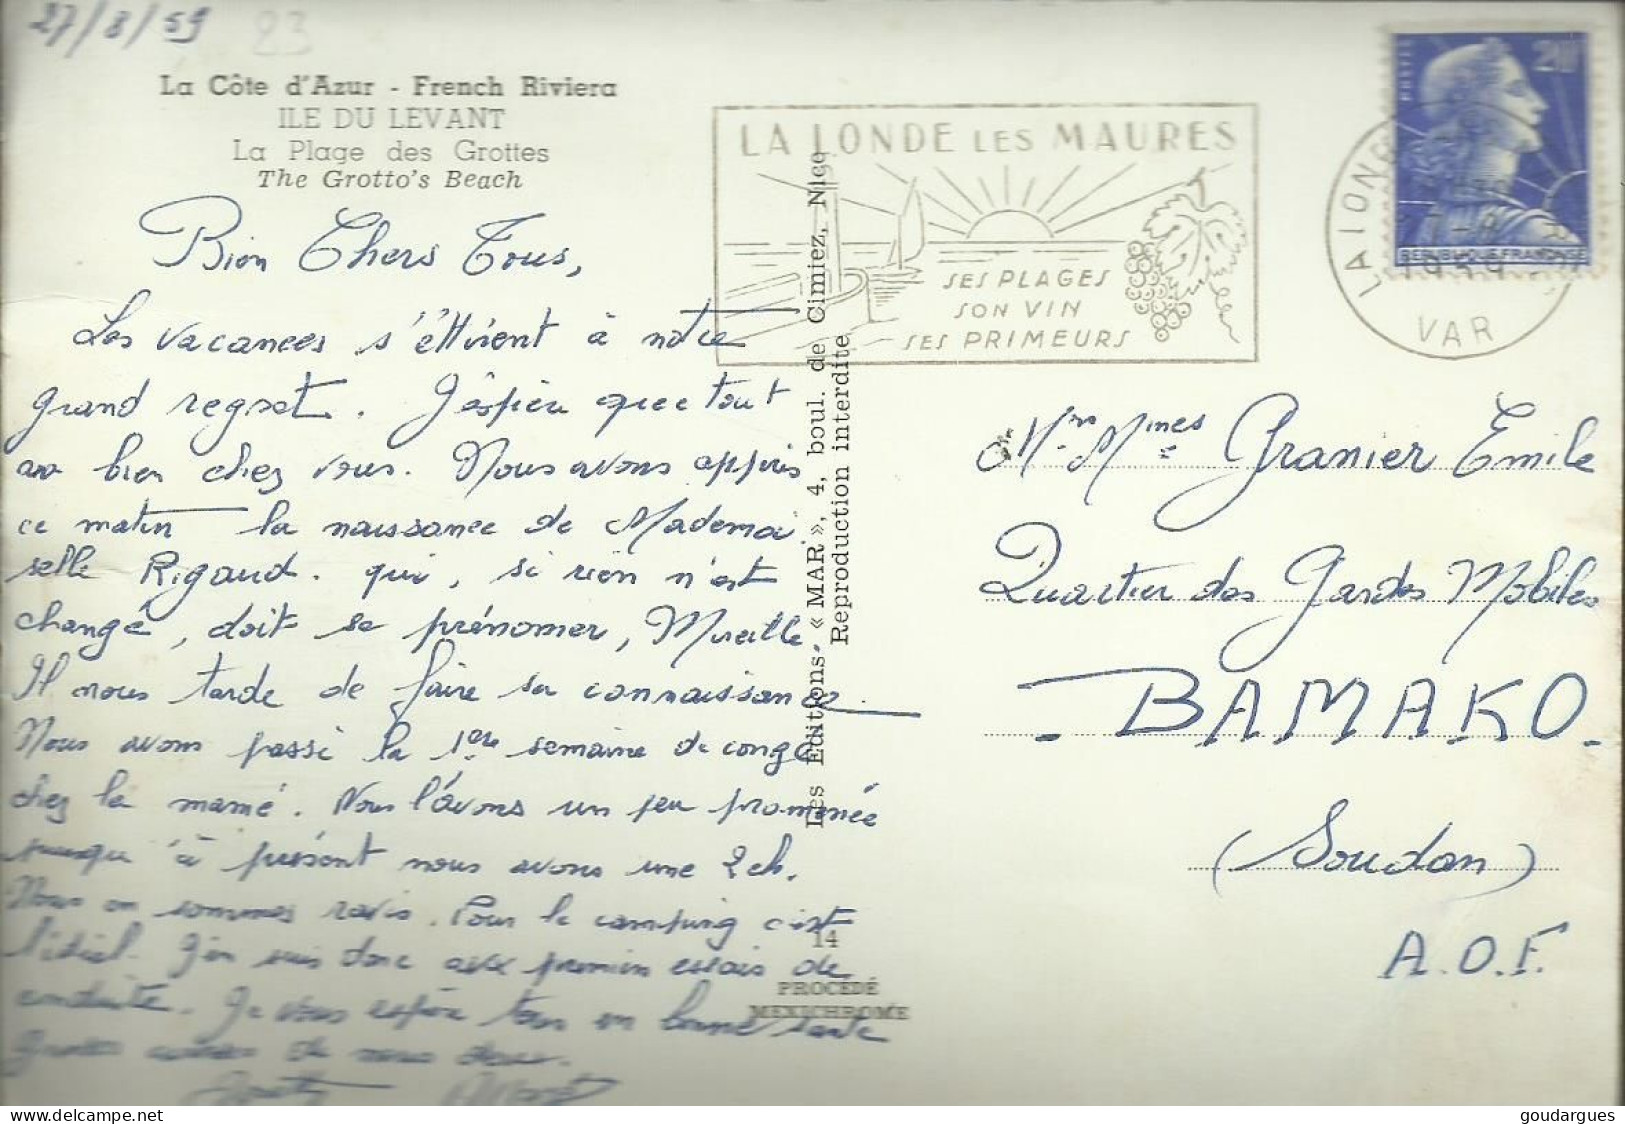 27/8/59
23
La Côte d'Azur - French Riviera
ILE DU LEVANT
La Plage des Grottes
The Grotto's Beach
Bien Chers Tous,
Les vacances s'étirent à notre
grand regret. J'éspère que tout
va bien chez vous. Nous avons appris
ce matin la naissance de Mademoi
selle Rigaud. qui, si rien n'est
changé, doit se prénomer, Mireille.
Il nous tarde de faire sa connaissance
Nous avons passé la 1ère semaine de congé
chez la mamé. Nous l'avons un peu promenée
puisqu'à présent nous avons une 2ch.
Nous en sommes ravis. Pour le camping c'est
l'idéal. J'en suis donc aux premiers essais de
conduite. Je vous espère tous en bonne santé
Grosses de nous deux.
LA LONDE LES MAURES
SES PLAGES
SON VIN
SES PRIMEURS
20F
POSTES
REPUBLIQUE FRANÇAISE
LA LONDE
1959
VAR
Les Editions « MAR », 4, boul. de Cimiez, Nice
Reproduction interdite
14
PROCÉDÉ
MEXICHROME
Mr Mmes Granier Emile
Quartier des Gardes Mobiles
- BAMAKO -
(Soudan)
A.O.F.
delcampe.net
goudargues